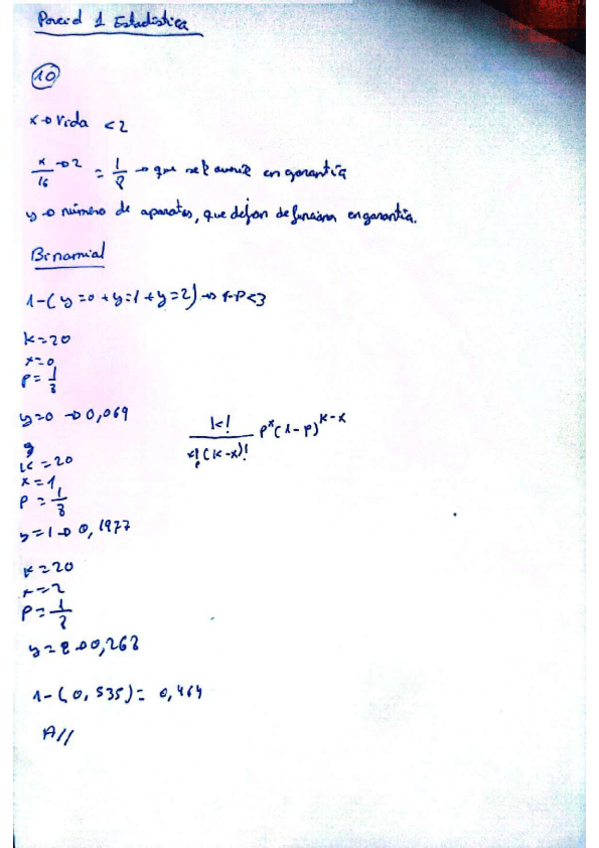 Parcial 1 Estadística
10
x → vida < 2
x/16 → 2 = 1/8 → que se averie en garantía
y → número de aparatos, que dejan de funcionar en garantía.
Binomial
1-(y=0 + y=1 + y=2) → 1-P<3
k=20
x=0
p=1/8
y=0 → 0,069
k=20
x=1
p=1/8
y=1 → 0,1977
k=20
x=2
p=1/8
y=2 → 0,268
k!/x!(k-x)! p^x(1-p)^k-x
1-(0,535)= 0,464
A//